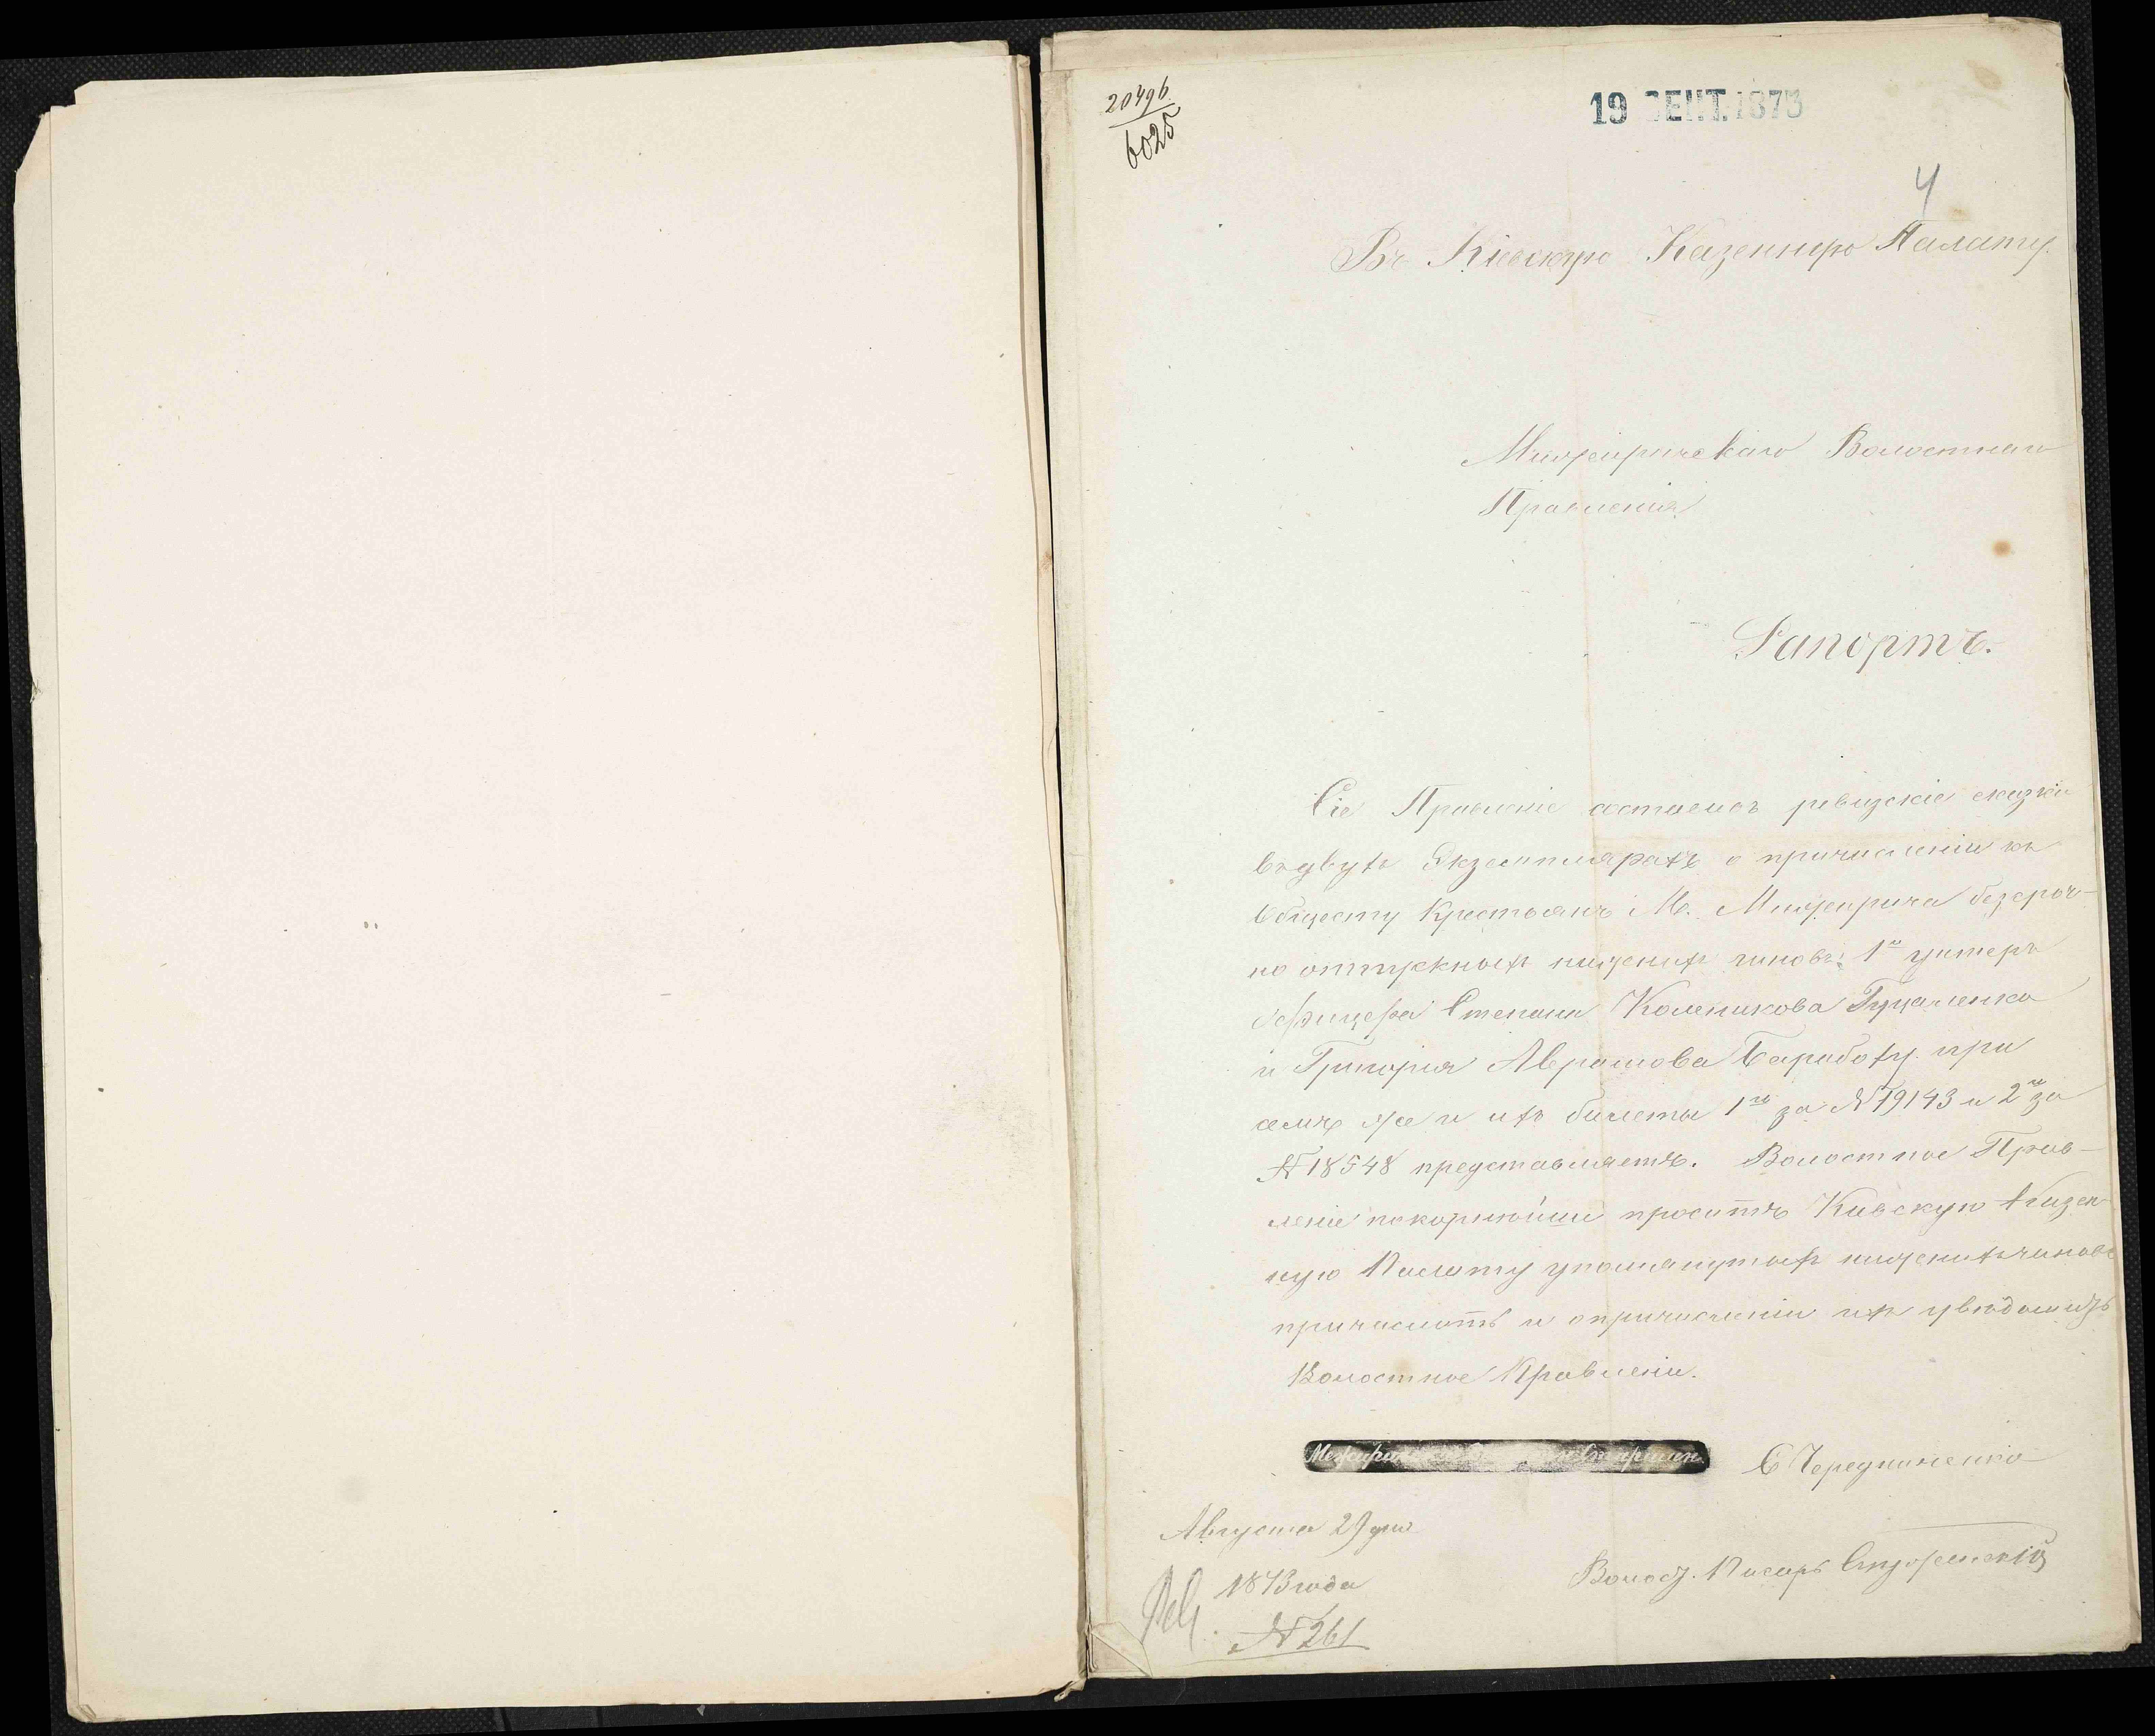 20496
6025
19 СЕНТ. 1873
4
Въ Кіевскую Казенную Палату.
Межиричскаго Волостнаго
Правленія
Рапортъ.
Сіе Правленіе ревизскіе сказки
въ двухъ Экземплярахъ о причисленіи къ
Обществу Крестьянъ М. Межирича безсроч-
но отпускныхъ нижнихъ чиновъ: 1го унтеръ
офицера Степана Гуцаленка
и Григорія Аврамова при
семъ же и ихъ билеты 1го за № 19143 и 2го за
№ 18548 представляетъ. Волостное Прав-
леніе покорнѣйше проситъ Кіевскую Казен
ную Палату упомянутыхъ нижнихъ чиновъ
причислить и о причисленіи ихъ увѣдомить
Волостное Правленіе.
С Чередниченко
Августа 29 дня
1873 года
№ 261
Волост. Писарь